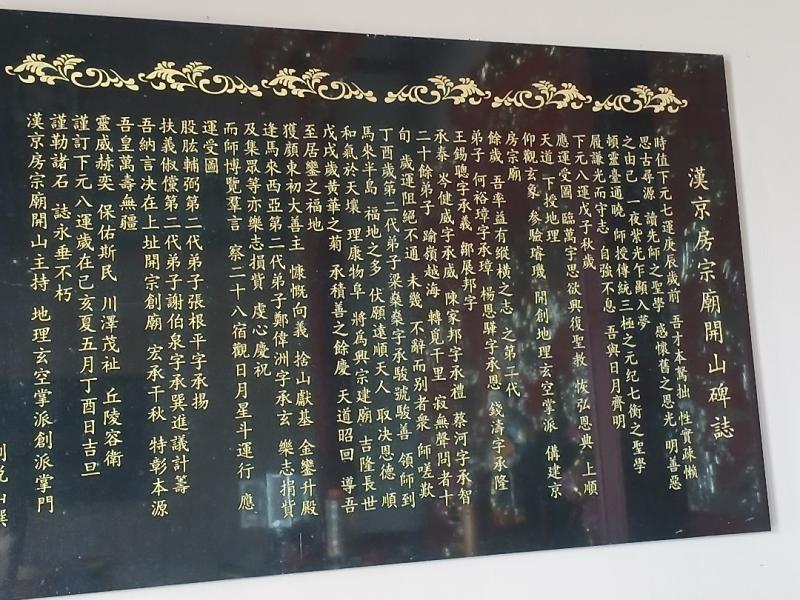 漢京房宗廟開山碑誌
時值下元七運庚辰歲前 吾才本駑拙 性實疎懶
思古尋源 讀先師之聖學 感懷舊之恩光 明善惡
之由己 一夜紫光乍顯入夢
頓靈臺通曉 師授傳統三極之元紀七衡之聖學
履謙光而守志 自強不息 吾與日月齊明
下元八運戊子秋歲
應運受圖 臨萬宇思欲興復聖教 恢弘恩典 上順
天道 下授地理
仰觀玄象 參驗璿璣 開創地理玄空掌派 僝建京
房宗廟
餘歲 吾率益有縱橫之志 之第二代
弟子 何裕璋字承璋 楊恩驊字承恩 錢濤字承隆
王錫聰字承義 鄒展邦字
承泰 岑健威字承威 陳家邦字承禮 蔡河字承智
二十餘弟子 踰嶺越海 轉覓千里 寂無聲問者十
旬 歲運阻絕不通 未幾 不辭而別者衆 師嗟歎
丁酉歲第二代弟子梁燊燊字承駿號駿善 領師到
馬來半島 福地之多 伏願遠順天人 取決恩德 順
和氣於天壤 理康物阜 將爲興宗建廟 吉隆長世
戊戌歲黃華之菊 承積善之餘慶 天道昭回 導吾
至居鑾之福地
獲顧東初大善主 慷慨向義 捨山獻基 金鑾升殿
逢馬來西亞第二代弟子鄭偉洲字承玄 樂志捐貲
及集眾等亦樂志捐貲 虔心慶祝
而師博覽羣言 察二十八宿觀日月星斗運行 應
運受圖
股肱輔弼第二代弟子張根平字承揚
扶義俶儻第二代弟子謝伯泉字承巽進議計籌
吾納言決在上址開宗創廟 宏承千秋 特彰本源
吾皇萬壽無疆
靈威赫奕 保佑斯民 川澤茂祉 丘陵容衛
謹訂下元八運歲在己亥夏五月丁酉日吉旦
謹勒諸石 誌永垂不朽
漢京房宗廟開山主持 地理玄空掌派創派掌門